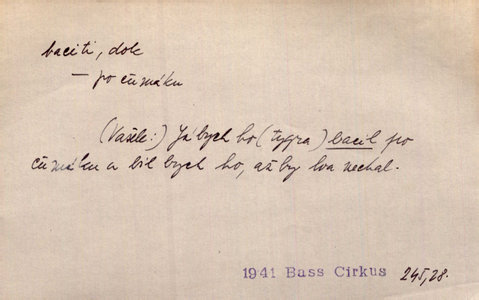 baciti, dok
— po čumáku
(Vašek:) Já bych ho (tygra) bacil po
čumáku a bil bych ho, až by lva nechal.
1941 Bass Cirkus 245,28.